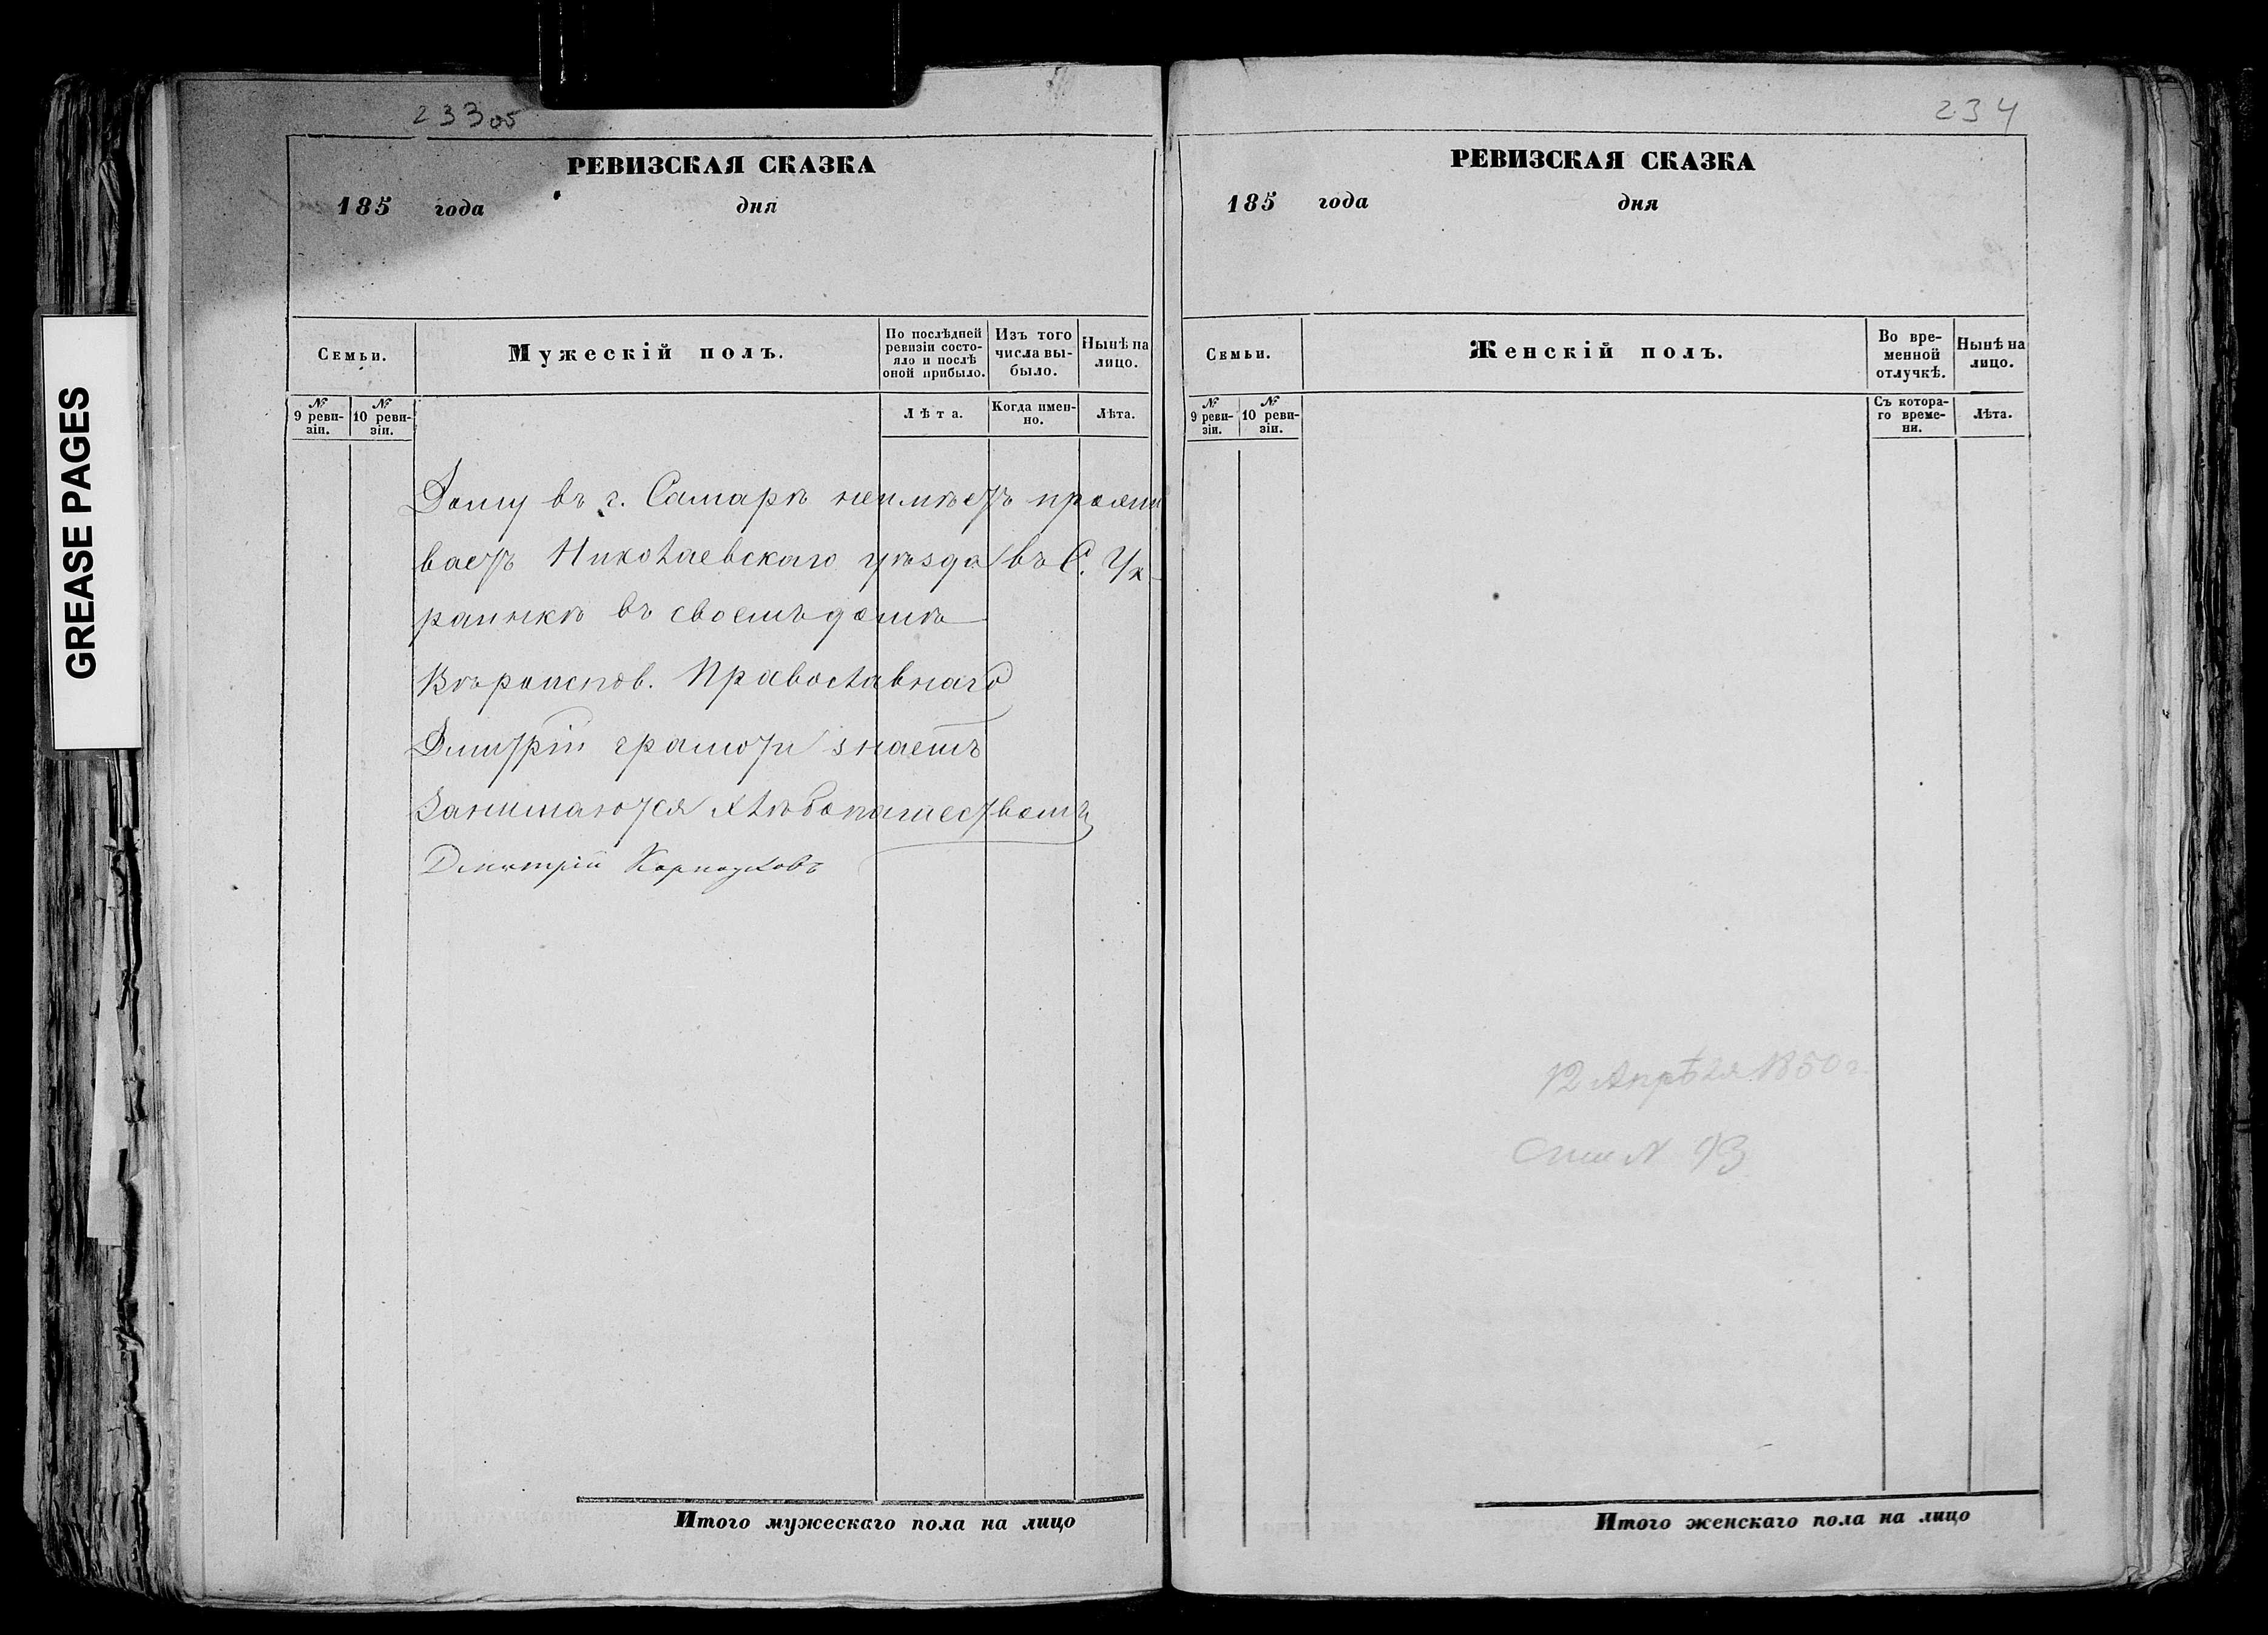 GREASE PAGES
233об
РЕВИЗСКАЯ СКАЗКА
185 года дня
Семьи.
Мужескій полъ.
По послѣдней ревизіи состояло и послѣ оной прибыло.
Изъ того числа выбыло.
Нынѣ на лицо.
№ 9 ревизіи.
№ 10 ревизіи.
Лѣта.
Когда именно.
Лѣта.
Дому въ г. Самарѣ неимѣетъ прожи
ваетъ Николаевскаго уѣзда въ С. Ук
раинкѣ въ своемъ домѣ
Вѣроисков. Православнаго
Дмитрій грамоти знаетъ
Занимаются хлѣбопашествомъ
Дмитрій
Итого мужескаго пола на лицо
234
РЕВИЗСКАЯ СКАЗКА
185 года дня
Семьи.
Женскій полъ.
Во временной отлучкѣ.
Нынѣ на лицо.
№ 9 ревизіи.
№ 10 ревизіи.
Съ котораго времени.
Лѣта.
12 Апрѣля 1850 г.
Итого женскаго пола на лицо